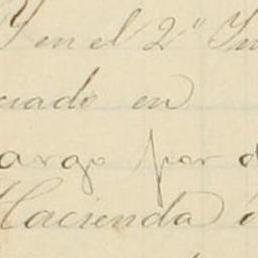 Y en el 2º In
uado en
argo por d
Hacienda é